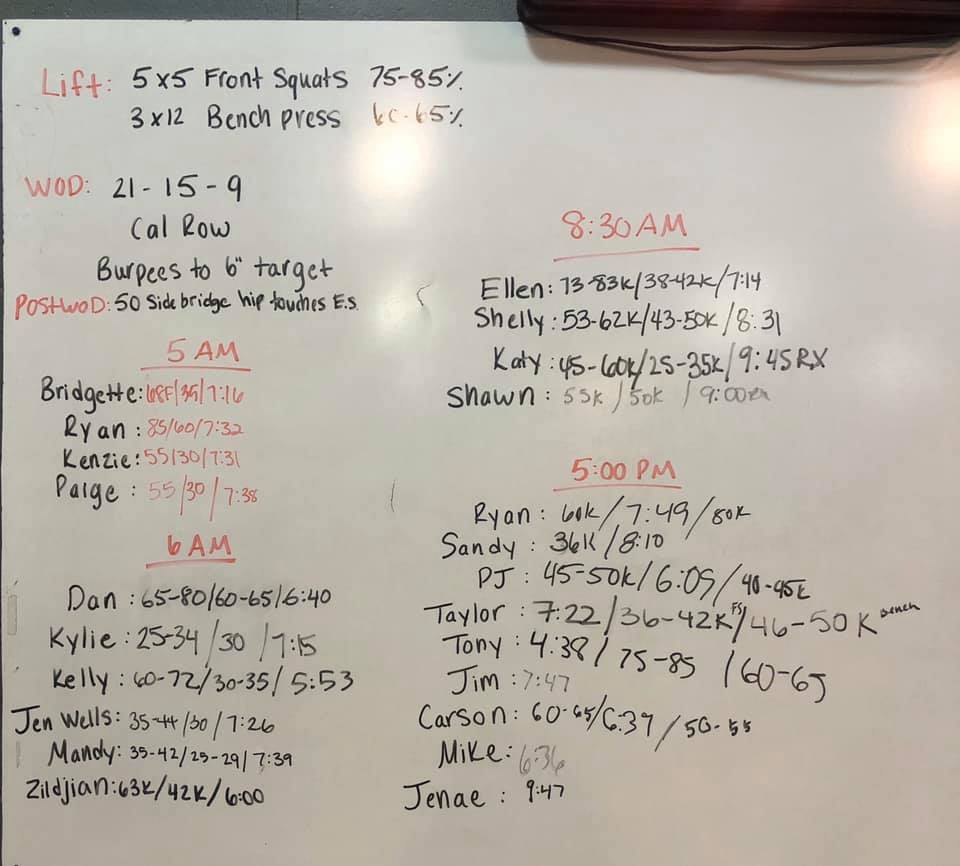 Lift: 5x5 Front Squats 75-85%
3x12 Bench press 60-65%
WOD: 21-15-9
Cal Row
Burpees to 6" target
POSTWOD: 50 Side bridge hip touches E.S.
5 AM
Bridgette: 35/7:16
Ryan: 85/60/7:32
Kenzie: 55/30/7:31
Paige: 55/30/7:38
6 AM
Dan: 65-80/60-65/6:40
Kylie: 25-34/30/7:15
Kelly: 60-72/30-35/5:53
Jen Wells: 35-44/30/7:26
Mandy: 35-42/25-29/7:39
Zildjian: 63K/42K/6:00
8:30 AM
Ellen: 73-83K/38-42K/7:14
Shelly: 53-62K/43-50K/8:31
Katy: 45-60K/25-35K/9:45RX
Shawn: 55K/50K/9:00
5:00 PM
Ryan: 60K/7:49/80K
Sandy: 36K/8:10
PJ: 45-50K/6:09/40-45K
Taylor: 7:22/36-42K FS/46-50K Bench
Tony: 4:38/75-85/60-65
Jim: 7:47
Carson: 60-65/6:39/50-55
Mike: 6:36
Jenae: 9:47